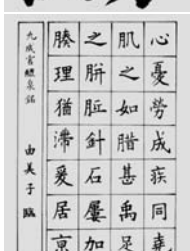 心憂勞成疾同堯
肌之如腊甚禹足
之胼胝針石屢加
腠理猶滯爰居京
九成宮醴泉銘 由美子 臨